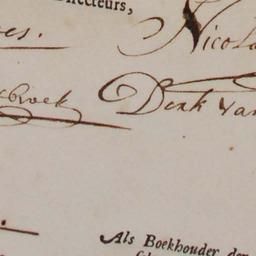 Directeurs,
es. Nicola
broek Dirk van
Als Boekhouder der